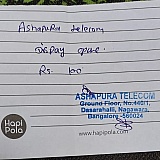 Ashapura telecom
Display operc.
Rs. 100
Hapi
Pola
ASHAPURA TELECOM
Ground Floor, No.440/1,
Dasarahalli, Nagawara,
Bangalore -560024
www.hapipola.com